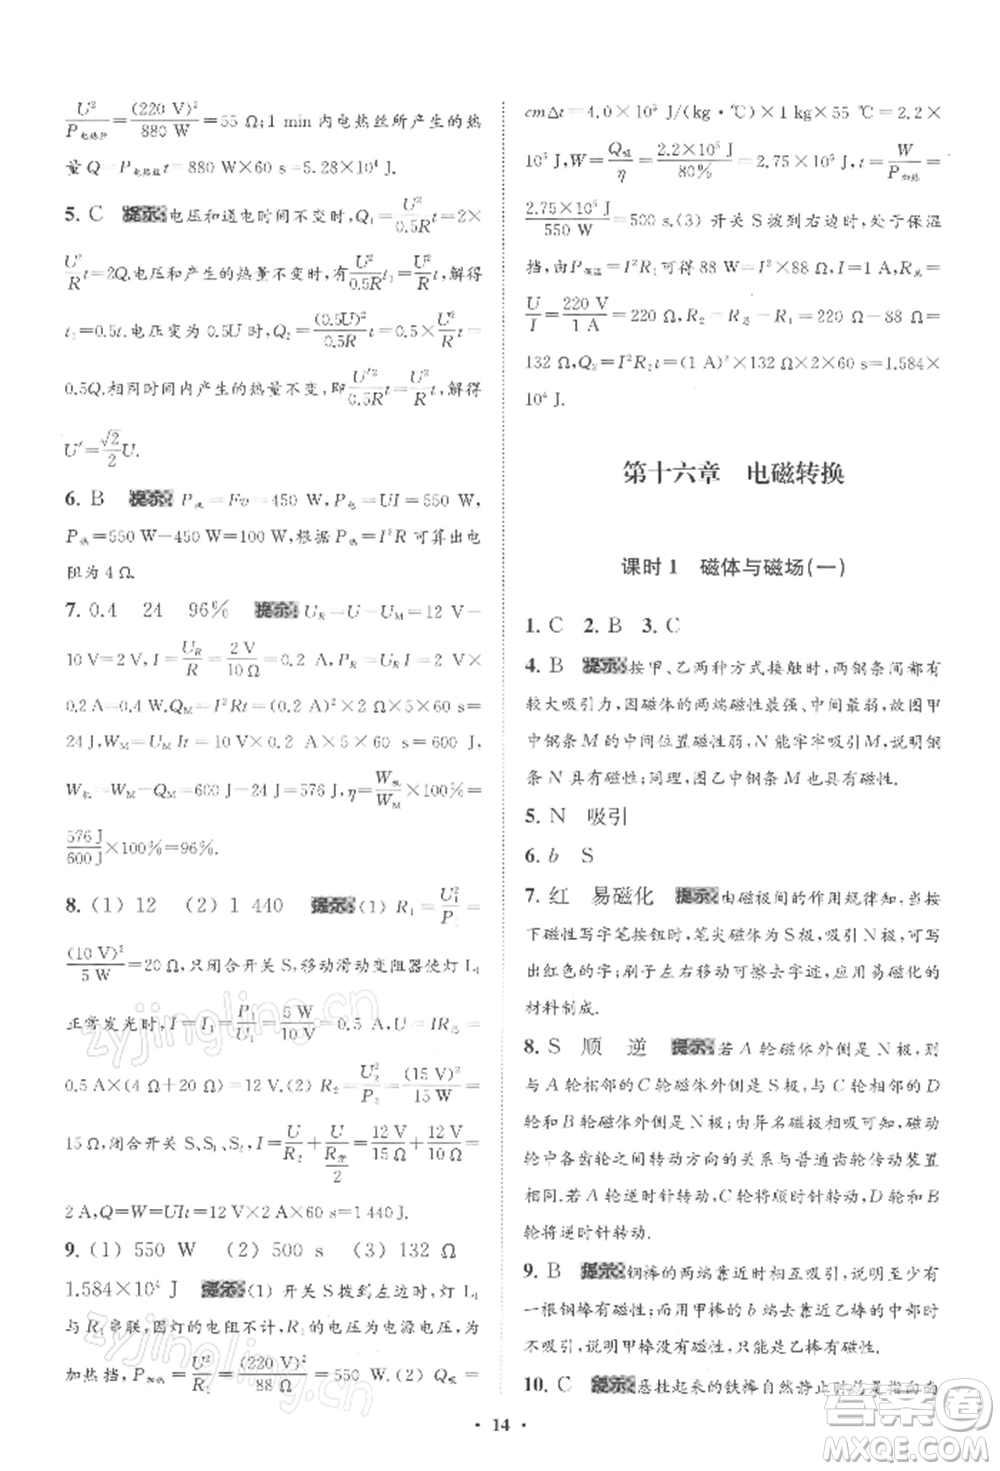 U²/P电热丝=(220 V)²/880 W=55 Ω;1 min 内电热丝所产生的热
量 Q=P电热丝t=880 W×60 s=5.28×10⁴ J.
5. C 提示:电压和通电时间不变时,Q₁=U²/0.5R t=2×
U²/R t=2Q.电压和产生的热量不变时,有U²/0.5R t₁=U²/R t,解得
t₁=0.5t.电压变为 0.5U 时,Q₂=(0.5U)²/0.5R t=0.5×U²/R t=
0.5Q.相同时间内产生的热量不变,即U′²/0.5R t=U²/R t,解得
U′=√2/2 U.
6. B 提示:P机=Fv=450 W,P电=UI=550 W,
P热=550 W−450 W=100 W,根据 P热=I²R 可算出电
阻为 4 Ω.
7. 0.4 24 96% 提示:U_R=U−U_M=12 V−
10 V=2 V,I=U_R/R=2 V/10 Ω=0.2 A,P_R=U_R I=2 V×
0.2 A=0.4 W.Q_M=I²Rt=(0.2 A)²×10 Ω×60 s=
24 J,W_M=U_M It=10 V×0.2 A×5×60 s=600 J,
W机=W_M−Q_M=600 J−24 J=576 J,η=W机/W_M×100%=
576 J/600 J×100%=96%.
8. (1) 12 (2) 1 440 提示:(1) R₁=U₁²/P=
(10 V)²/5 W=20 Ω,只闭合开关 S,移动滑动变阻器使灯 L₁
正常发光时,I=I₁=P₁/U₁=5 W/10 V=0.5 A,U=IR总=
0.5 A×(4 Ω+20 Ω)=12 V.(2) R₂=U₂²/P₂=(15 V)²/15 W=
15 Ω,闭合开关 S、S₁、S₂,I=U/R₂+U/(R变/2)=12 V/15 Ω+12 V/10 Ω=
2 A,Q=W=UIt=12 V×2 A×60 s=1 440 J.
9. (1) 550 W (2) 500 s (3) 132 Ω
1.584×10⁴ J 提示:(1) 开关 S 拨到左边时,灯 L₁
与 R₁ 串联,因灯的电阻不计,R₁ 的电压为电源电压,为
加热挡,P加热=U²/R₁=(220 V)²/88 Ω=550 W.(2) Q吸=
cmΔt=4.0×10³ J/(kg·℃)×1×55 ℃=2.2×
10⁵ J,W=Q吸/η=2.2×10⁵ J/80%=2.75×10⁵ J,t=W/P加热=
2.75×10⁵ J/550 W=500 s.(3) 开关 S 拨到右边时,处于保温
挡,由P保温=I²R₁可得 88 W=I²×88 Ω,I=1 A,R总=
U/I=220 V/1 A=220 Ω,R₂=R总−R₁=220 Ω−88 Ω=
132 Ω,Q₂=I²R₂t=(1 A)²×132 Ω×2×60 s=1.584×
10⁴ J.
第十六章 电磁转换
课时 1 磁体与磁场(一)
1. C 2. B 3. C
4. B 提示:按甲、乙两种方式接触时,两钢条间都有
较大吸引力.因磁体的两端磁性最强、中间最弱,故图甲
中钢条 M 中间位置磁性弱,N 能牢牢吸引 M,说明钢
条 N 具有磁性;同理,图乙中钢条 M 也应有磁性.
5. N 吸引
6. b S
7. 红 易磁化 提示:由磁极间的作用规律知,当按
下磁性写字笔按钮时,笔尖磁体为 S 极,吸引 N 极,可写
出红色的字;刷子左右移动可擦去字迹,应用易磁化的
材料制成.
8. S 顺 逆 提示:若 A 轮磁体外侧是 N 极,则
与 A 轮相邻的 C 轮磁体外侧是 S 极,与 C 轮相邻的 D
轮和 B 轮磁体外侧是 N 极;由异名磁极相吸引,磁动
轮中各齿轮之间转动方向的关系与普通齿轮传动装置
相同.若 A 轮逆时针转动,则 C 轮将顺时针转动,D 和 B
轮将逆时针转动.
9. B 提示:钢棒的两端靠近时相互吸引,可能是有
一根钢棒有磁性;而用甲棒的 b 端去靠近乙棒的中部时
不吸引,说明甲棒没有磁性,只能是乙棒有磁性.
10. C 提示:悬挂起来的铁棒自然静止时总是指向南
• 14 •
zyjingling.cn
zyjingling.cn
答案圈
MXQE.COM